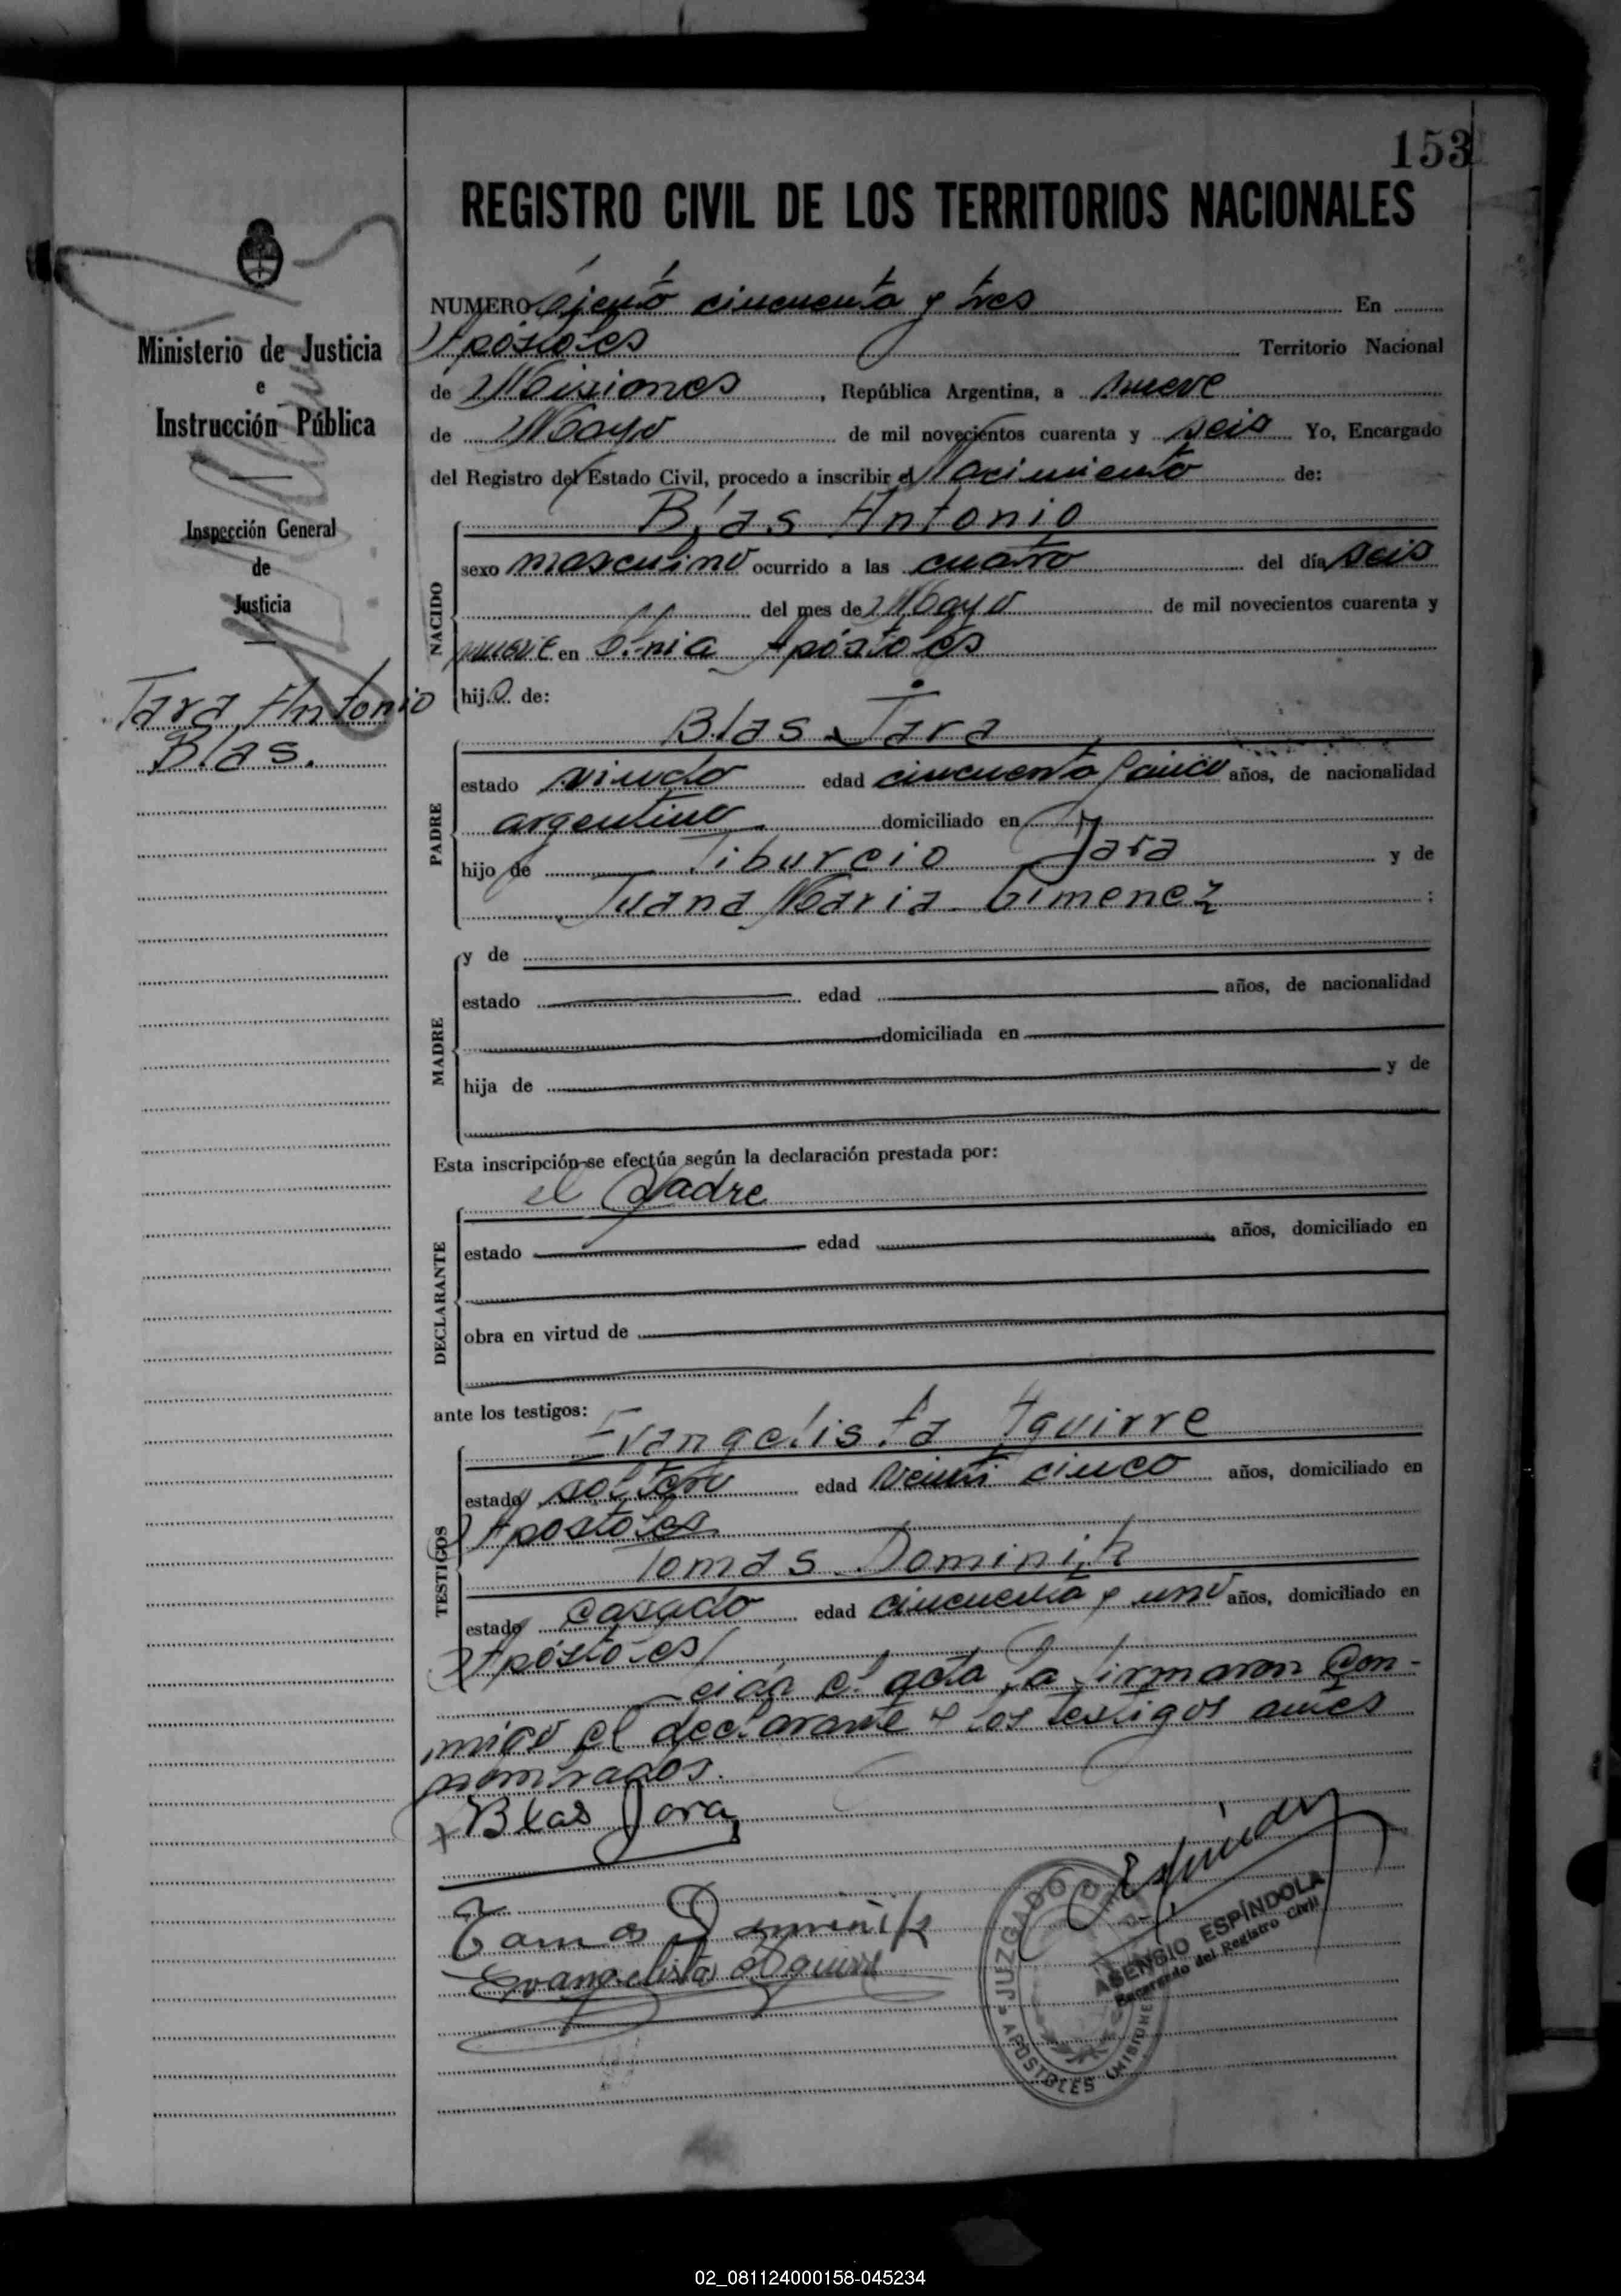 153
REGISTRO CIVIL DE LOS TERRITORIOS NACIONALES
Ministerio de Justicia
e
Instrucción Pública
Inspección General
de
Justicia
Jara Antonio
Blas.
NUMERO Ciento cincuenta y tres En
Apóstoles Territorio Nacional
de Misiones, República Argentina, a nueve
de Mayo de mil novecientos cuarenta y seis Yo, Encargado
del Registro del Estado Civil, procedo a inscribir el Nacimiento de:
Blas Antonio
NACIDO
sexo masculino ocurrido a las cuatro del día seis
del mes de Mayo de mil novecientos cuarenta y
nueve en Apóstoles
hijo de:
Blas Jara
PADRE
estado viudo edad cincuenta años, de nacionalidad
argentino domiciliado en
hijo de Tiburcio Jara y de
Juana Maria Gimenez ;
MADRE
y de
estado edad años, de nacionalidad
domiciliada en
hija de y de
Esta inscripción se efectúa según la declaración prestada por:
el Padre
DECLARANTE
estado edad años, domiciliado en
obra en virtud de
ante los testigos:
Evangelista Aguirre
TESTIGOS
estado soltero edad veinti cinco años, domiciliado en
Apostoles
Tomas Dominik
estado casado edad cincuenta y uno años, domiciliado en
Apóstoles
el acta la firmaron con-
migo el declarante y los testigos antes
nombrados.
Blas Jara
Tomas Dominik
Evangelista Aguirre
JUZGADO DE
APOSTOLES (MISIONES)
ASENSIO ESPÍNDOLA
Encargado del Registro Civil
02_081124000158-045234